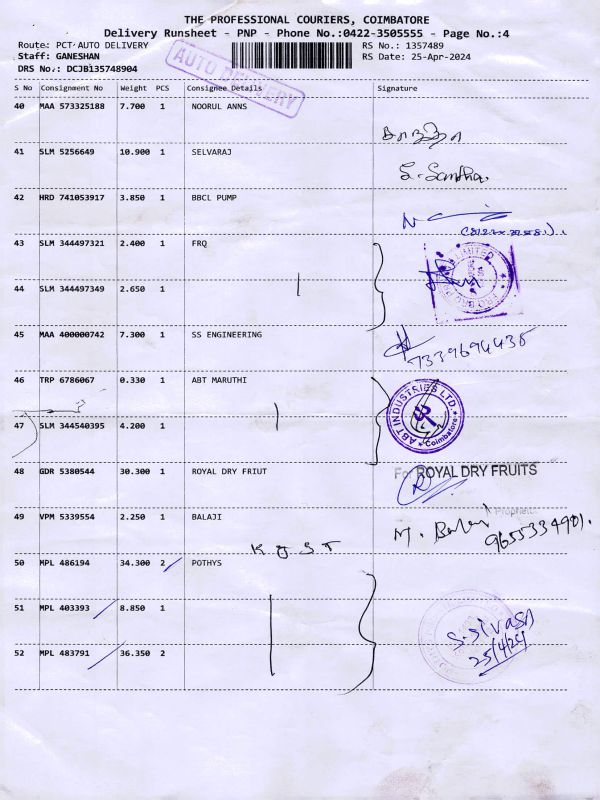 THE PROFESSIONAL COURIERS, COIMBATORE
Delivery Runsheet - PNP - Phone No.:0422-3505555 - Page No.:4
Route: PCT AUTO DELIVERY RS No.: 1357489
Staff: GANESHAN RS Date: 25-Apr-2024
DRS No.: DCJB135748904
AUTO DELIVERY
S No Consignment No Weight PCS Consignee Details Signature
40 MAA 573325188 7.700 1 NOORUL ANNS
41 SLM 5256649 10.900 1 SELVARAJ
42 HRD 741053917 3.850 1 BBCL PUMP
43 SLM 344497321 2.400 1 FRQ
44 SLM 344497349 2.650 1
45 MAA 400000742 7.300 1 SS ENGINEERING
7339694435
46 TRP 6786067 0.330 1 ABT MARUTHI
ABT INDUSTRIES LTD. Coimbatore
47 SLM 344540395 4.200 1
48 GDR 5380544 30.300 1 ROYAL DRY FRIUT For ROYAL DRY FRUITS
49 VPM 5339554 2.250 1 BALAJI
9655334901.
50 MPL 486194 34.300 2 POTHYS
51 MPL 403393 8.850 1
S. SIVASA
52 MPL 483791 36.350 2
25/4/24